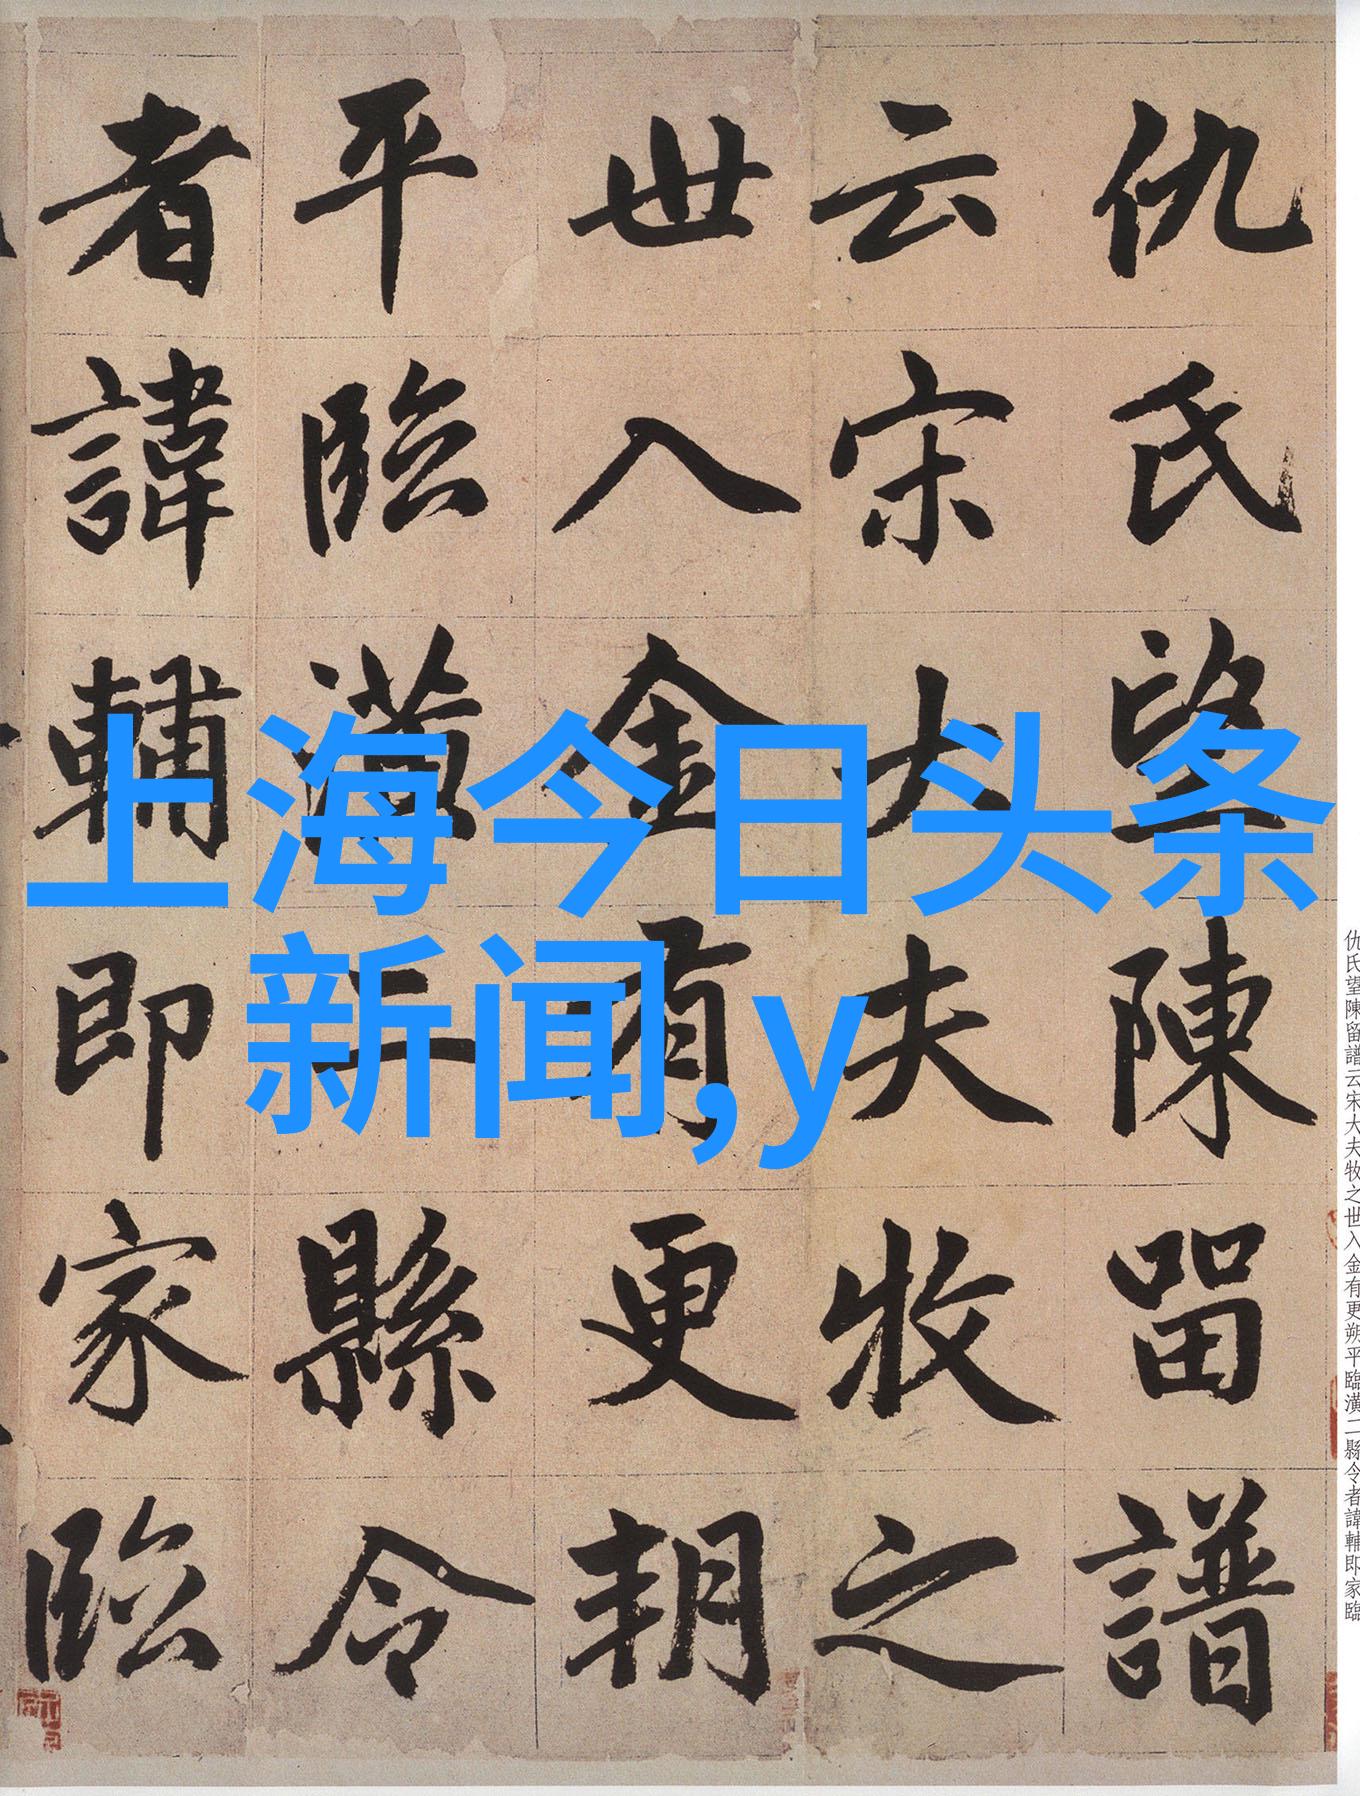 仇氏望陳留譜
云宋大夫牧之
世入金有更朔
平臨潢二縣令
者諱輔即家臨
上海今日头条
新闻,y
仇氏望陳留譜云宋大夫牧之世入金有更朔平臨潢二縣令者諱輔即家臨